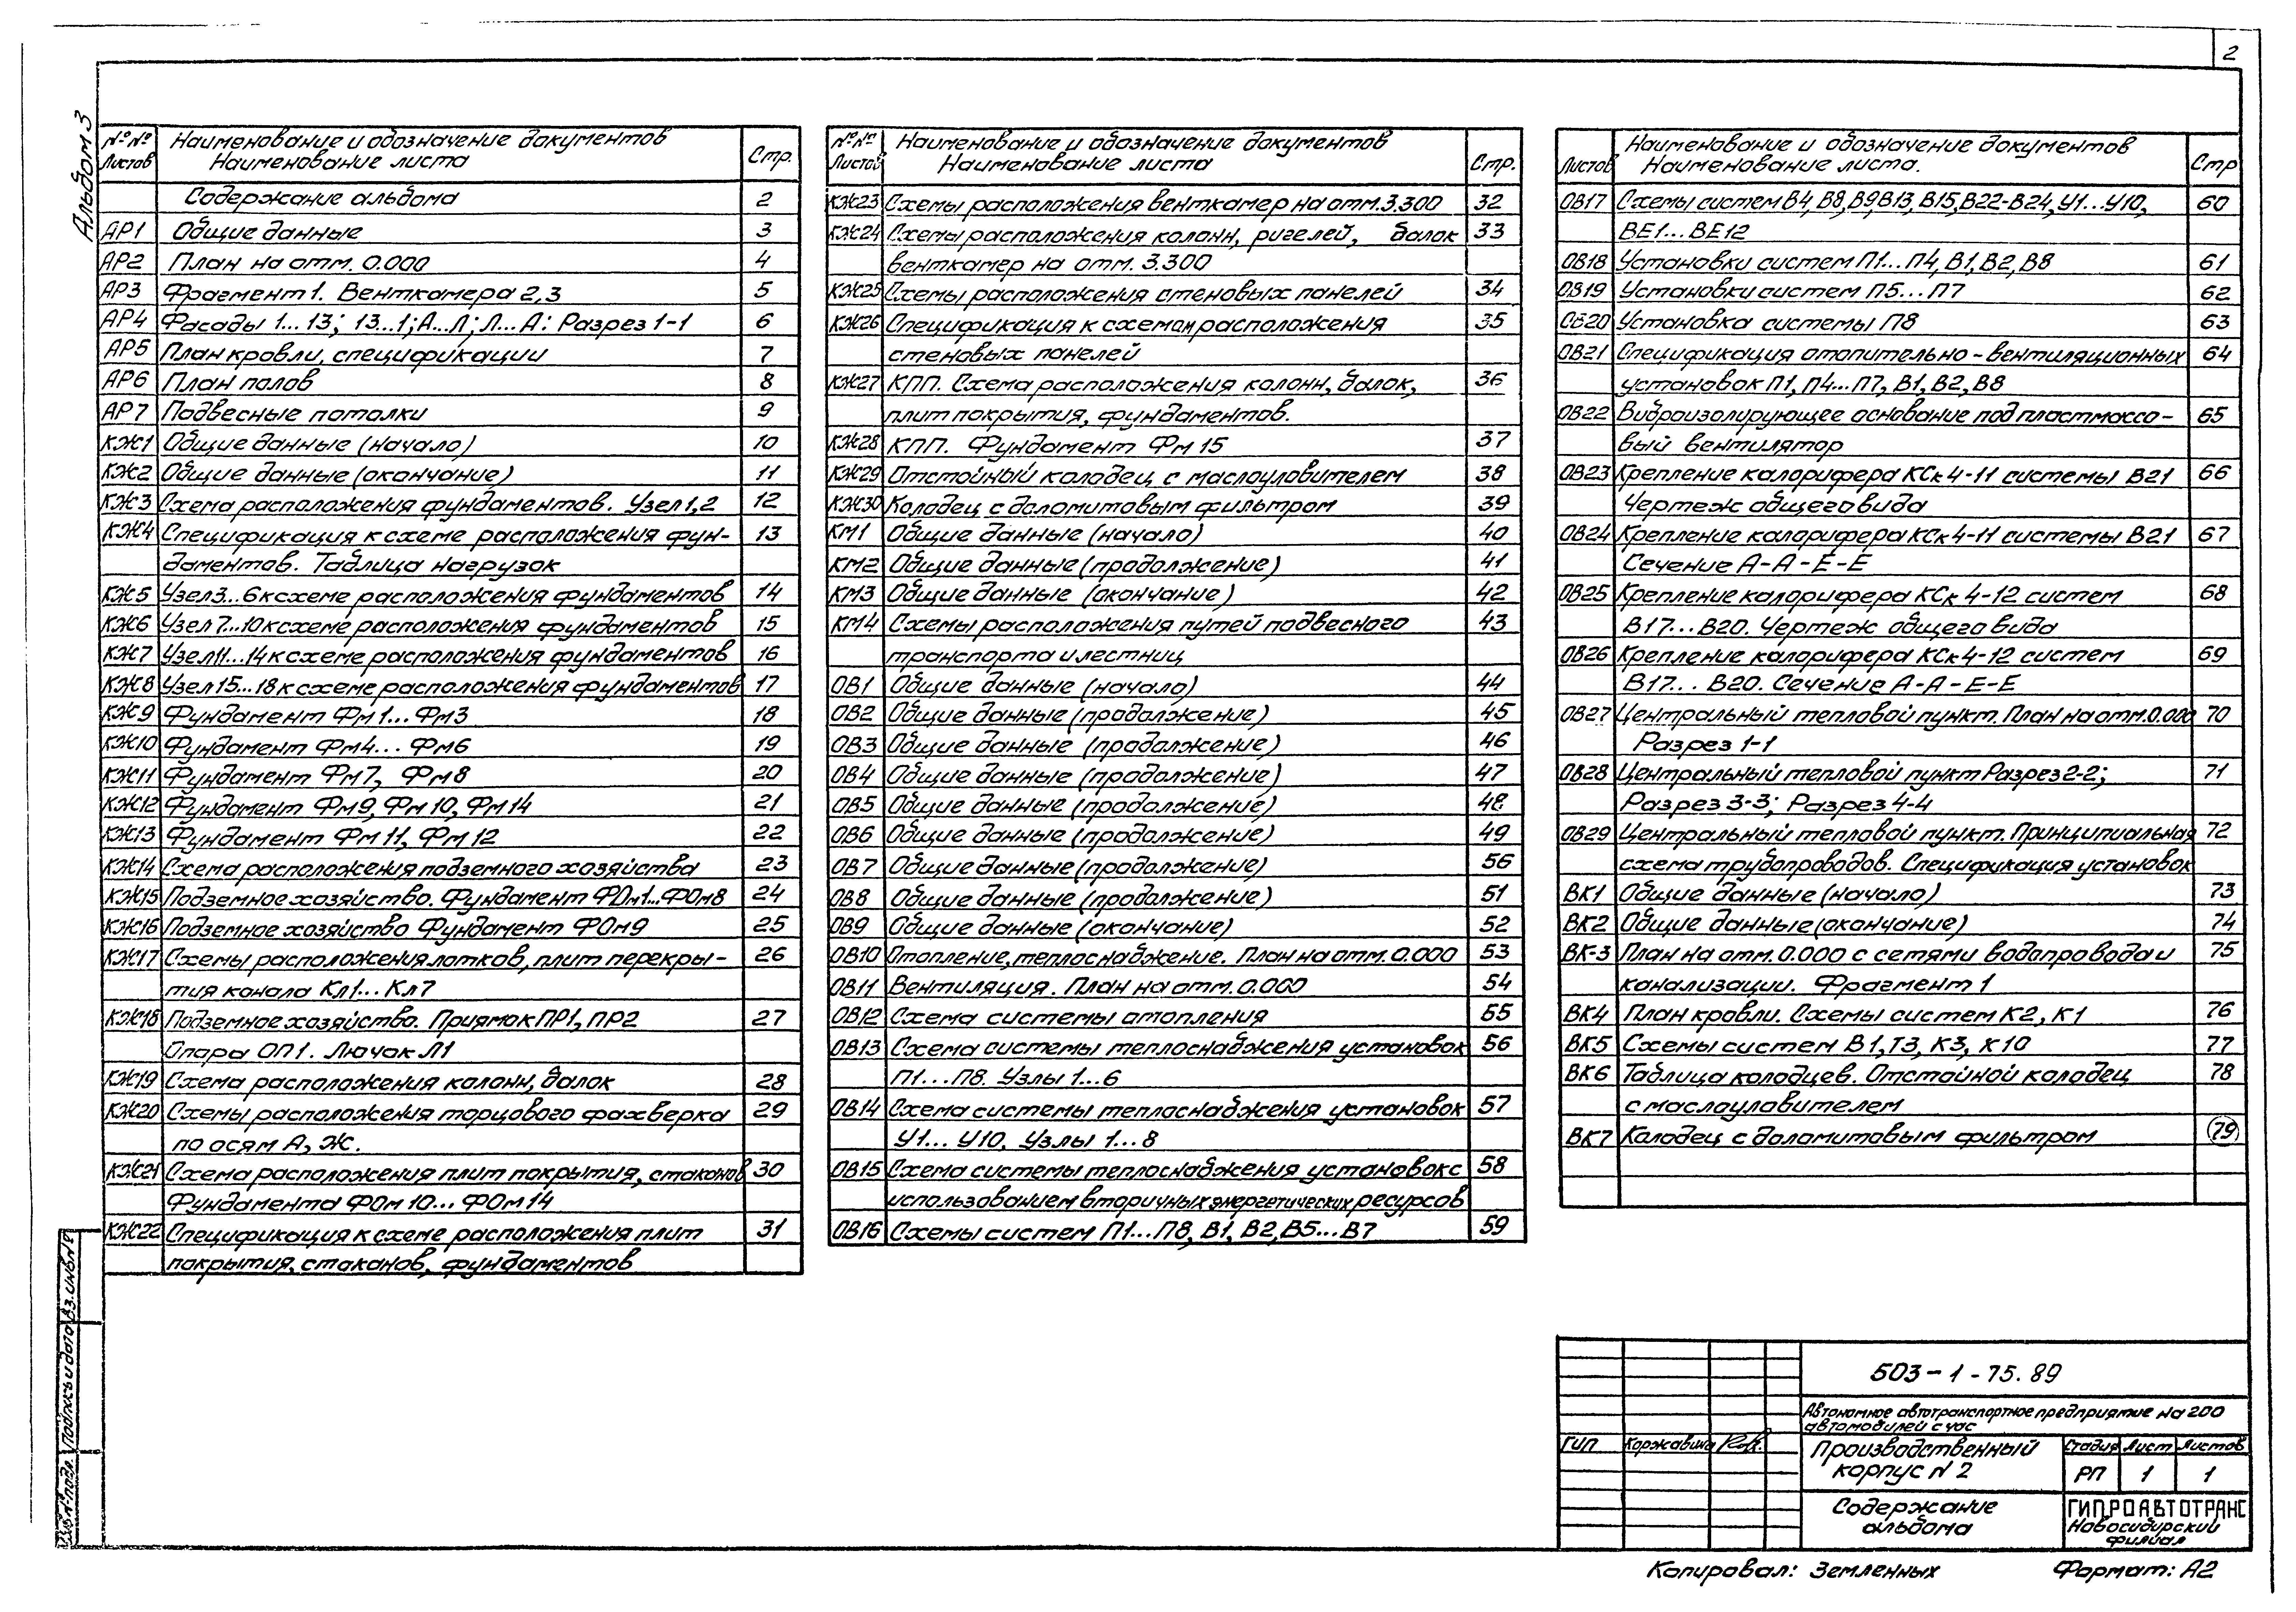 2
Альбом 3
№№ Листов Наименование и обозначение документов Наименование листа Стр.
Содержание альбома 2
АР1 Общие данные 3
АР2 План на отм. 0.000 4
АР3 Фрагмент 1. Венткамера 2,3 5
АР4 Фасады 1...13; 13...1; А...Л; Л...А: Разрез 1-1 6
АР5 План кровли, спецификации 7
АР6 План полов 8
АР7 Подвесные потолки 9
КЖ1 Общие данные (начало) 10
КЖ2 Общие данные (окончание) 11
КЖ3 Схема расположения фундаментов. Узел 1,2 12
КЖ4 Спецификация к схеме расположения фун- 13
даментов. Таблица нагрузок
КЖ5 Узел 3...6 к схеме расположения фундаментов 14
КЖ6 Узел 7...10 к схеме расположения фундаментов 15
КЖ7 Узел 11...14 к схеме расположения фундаментов 16
КЖ8 Узел 15...18 к схеме расположения фундаментов 17
КЖ9 Фундамент Фм1... Фм3 18
КЖ10 Фундамент Фм4... Фм6 19
КЖ11 Фундамент Фм7, Фм8 20
КЖ12 Фундамент Фм9, Фм10, Фм14 21
КЖ13 Фундамент Фм11, Фм12 22
КЖ14 Схема расположения подземного хозяйства 23
КЖ15 Подземное хозяйство. Фундамент ФОм1...ФОм8 24
КЖ16 Подземное хозяйство Фундамент ФОм9 25
КЖ17 Схемы расположения лотков, плит перекры- 26
тия канала Кл1... Кл7
КЖ18 Подземное хозяйство. Приямок ПР1, ПР2 27
Опора ОП1. Лючок Л1
КЖ19 Схема расположения колонн, балок 28
КЖ20 Схемы расположения торцового фахверка 29
по осям А, Ж.
КЖ21 Схема расположения плит покрытия, стаканов 30
Фундамента ФОм10... ФОм14
КЖ22 Спецификация к схеме расположения плит 31
покрытия, стаканов, фундаментов
№№ Листов Наименование и обозначение документов Наименование листа Стр.
КЖ23 Схемы расположения венткамер на отм. 3.300 32
КЖ24 Схемы расположения колонн, ригелей, балок 33
венткамер на отм. 3.300
КЖ25 Схемы расположения стеновых панелей 34
КЖ26 Спецификация к схемам расположения 35
стеновых панелей
КЖ27 КПП. Схема расположения колонн, балок, 36
плит покрытия, фундаментов.
КЖ28 КПП. Фундамент Фм 15 37
КЖ29 Отстойный колодец с маслоуловителем 38
КЖ30 Колодец с доломитовым фильтром 39
КМ1 Общие данные (начало) 40
КМ2 Общие данные (продолжение) 41
КМ3 Общие данные (окончание) 42
КМ4 Схемы расположения путей подвесного 43
транспорта и лестниц
ОВ1 Общие данные (начало) 44
ОВ2 Общие данные (продолжение) 45
ОВ3 Общие данные (продолжение) 46
ОВ4 Общие данные (продолжение) 47
ОВ5 Общие данные (продолжение) 48
ОВ6 Общие данные (продолжение) 49
ОВ7 Общие данные (продолжение) 56
ОВ8 Общие данные (продолжение) 51
ОВ9 Общие данные (окончание) 52
ОВ10 Отопление, теплоснабжение. План на отм. 0.000 53
ОВ11 Вентиляция. План на отм. 0.000 54
ОВ12 Схема системы отопления 55
ОВ13 Схема системы теплоснабжения установок 56
П1...П8. Узлы 1...6
ОВ14 Схема системы теплоснабжения установок 57
У1... У10. Узлы 1...8
ОВ15 Схема системы теплоснабжения установок с 58
использованием вторичных энергетических ресурсов
ОВ16 Схемы систем П1...П8, В1, В2, В5...В7 59
Листов Наименование и обозначение документов Наименование листа. Стр
ОВ17 Схемы систем В4, В8, В9, В13, В15, В22-В24, У1...У10, 60
ВЕ1... ВЕ12
ОВ18 Установки систем П1... П4, В1, В2, В8 61
ОВ19 Установки систем П5...П7 62
ОВ20 Установка системы П8 63
ОВ21 Спецификация отопительно-вентиляционных 64
установок П1, П4...П7, В1, В2, В8
ОВ22 Виброизолирующее основание под пластмассо- 65
вый вентилятор
ОВ23 Крепление калорифера КСк 4-11 системы В21 66
Чертеж общего вида
ОВ24 Крепление калорифера КСк 4-11 системы В21 67
Сечение А-А - Е-Е
ОВ25 Крепление калорифера КСк 4-12 систем 68
В17...В20. Чертеж общего вида
ОВ26 Крепление калорифера КСк 4-12 систем 69
В17... В20. Сечение А-А - Е-Е
ОВ27 Центральный тепловой пункт. План на отм. 0.000 70
Разрез 1-1
ОВ28 Центральный тепловой пункт Разрез 2-2; 71
Разрез 3-3; Разрез 4-4
ОВ29 Центральный тепловой пункт. Принципиальная 72
схема трубопроводов. Спецификация установок
ВК1 Общие данные (начало) 73
ВК2 Общие данные (окончание) 74
ВК-3 План на отм. 0.000 с сетями водопровода и 75
канализации. Фрагмент 1
ВК4 План кровли. Схемы систем К2, К1 76
ВК5 Схемы систем В1, Т3, К3, К10 77
ВК6 Таблица колодцев. Отстойной колодец 78
с маслоуловителем
ВК7 Колодец с доломитовым фильтром 79
503-1-75.89
Автономное автотранспортное предприятие на 200
автомобилей с час
ГИП Коржавина
Производственный
корпус N 2
Стадия Лист Листов
РП 1 1
Содержание
альбома
ГИПРОАВТОТРАНС
Новосибирский
филиал
Инв.№ подл. Подпись и дата Вз.инв.№
Копировал: Земленных Формат: А2